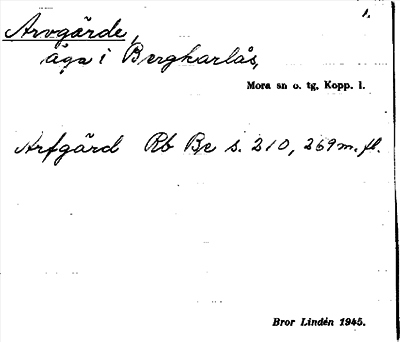 1.
Arvgärde,
åga i Bergkarlås,
Mora sn o. tg, Kopp. l.
Arfgärd Rb Be s. 210, 269 m. fl.
Bror Lindén 1945.